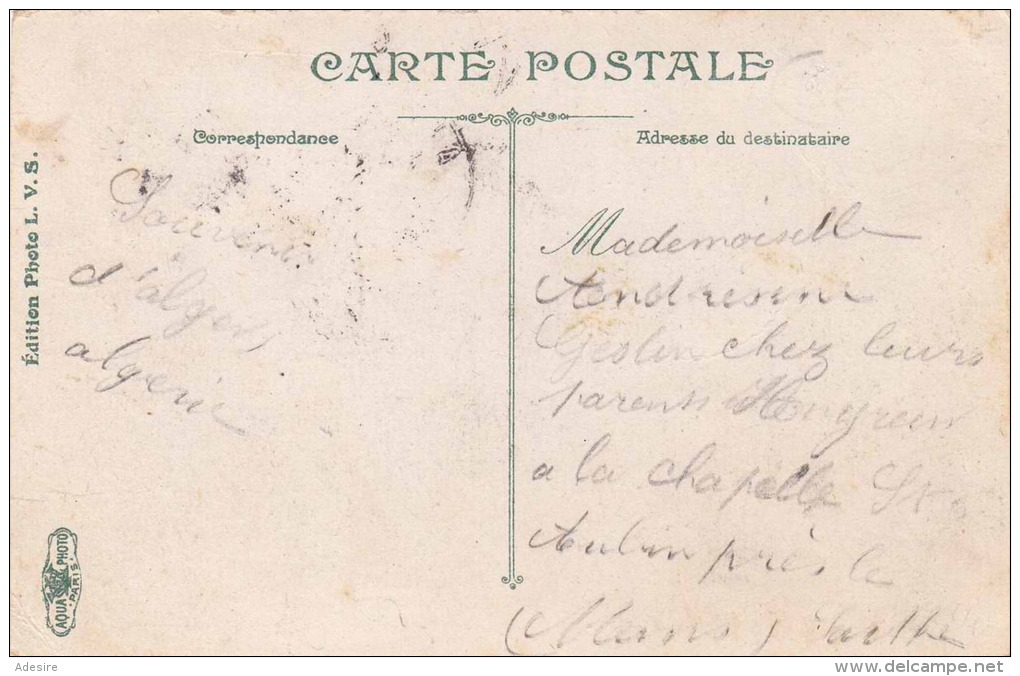 CARTE POSTALE
Correspondance
Adresse du destinataire
Édition Photo L. V. S.
Souvenir
d'alger
algerie
Mademoiselle
Geslin chez leurs
parents
a la chapelle St
Aubin près le
(Mans) Sarthe
AQUA PHOTO
PARIS
Adesire
www.delcampe.net